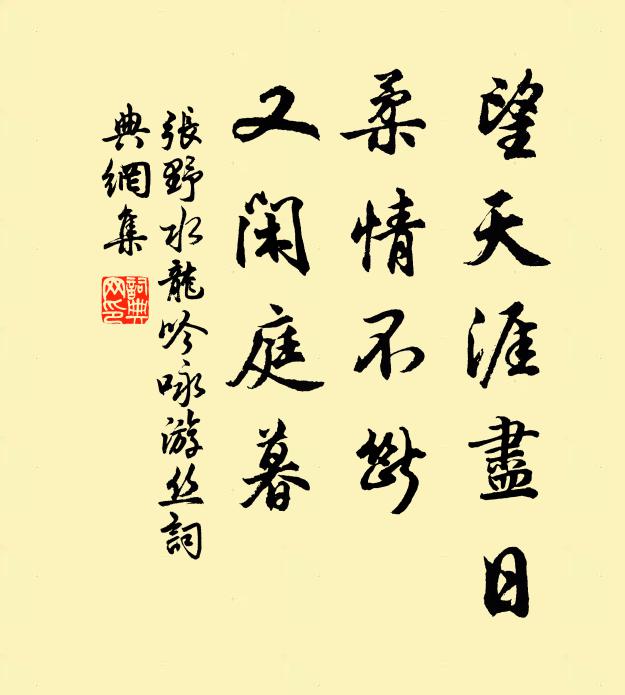 望天涯盡日
柔情不斷
又閑庭暮
張野水龍吟咏游丝詞
典網集
詞典网印